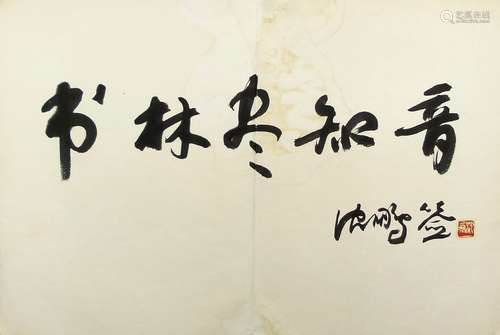 书林尽知音
沈鹏签